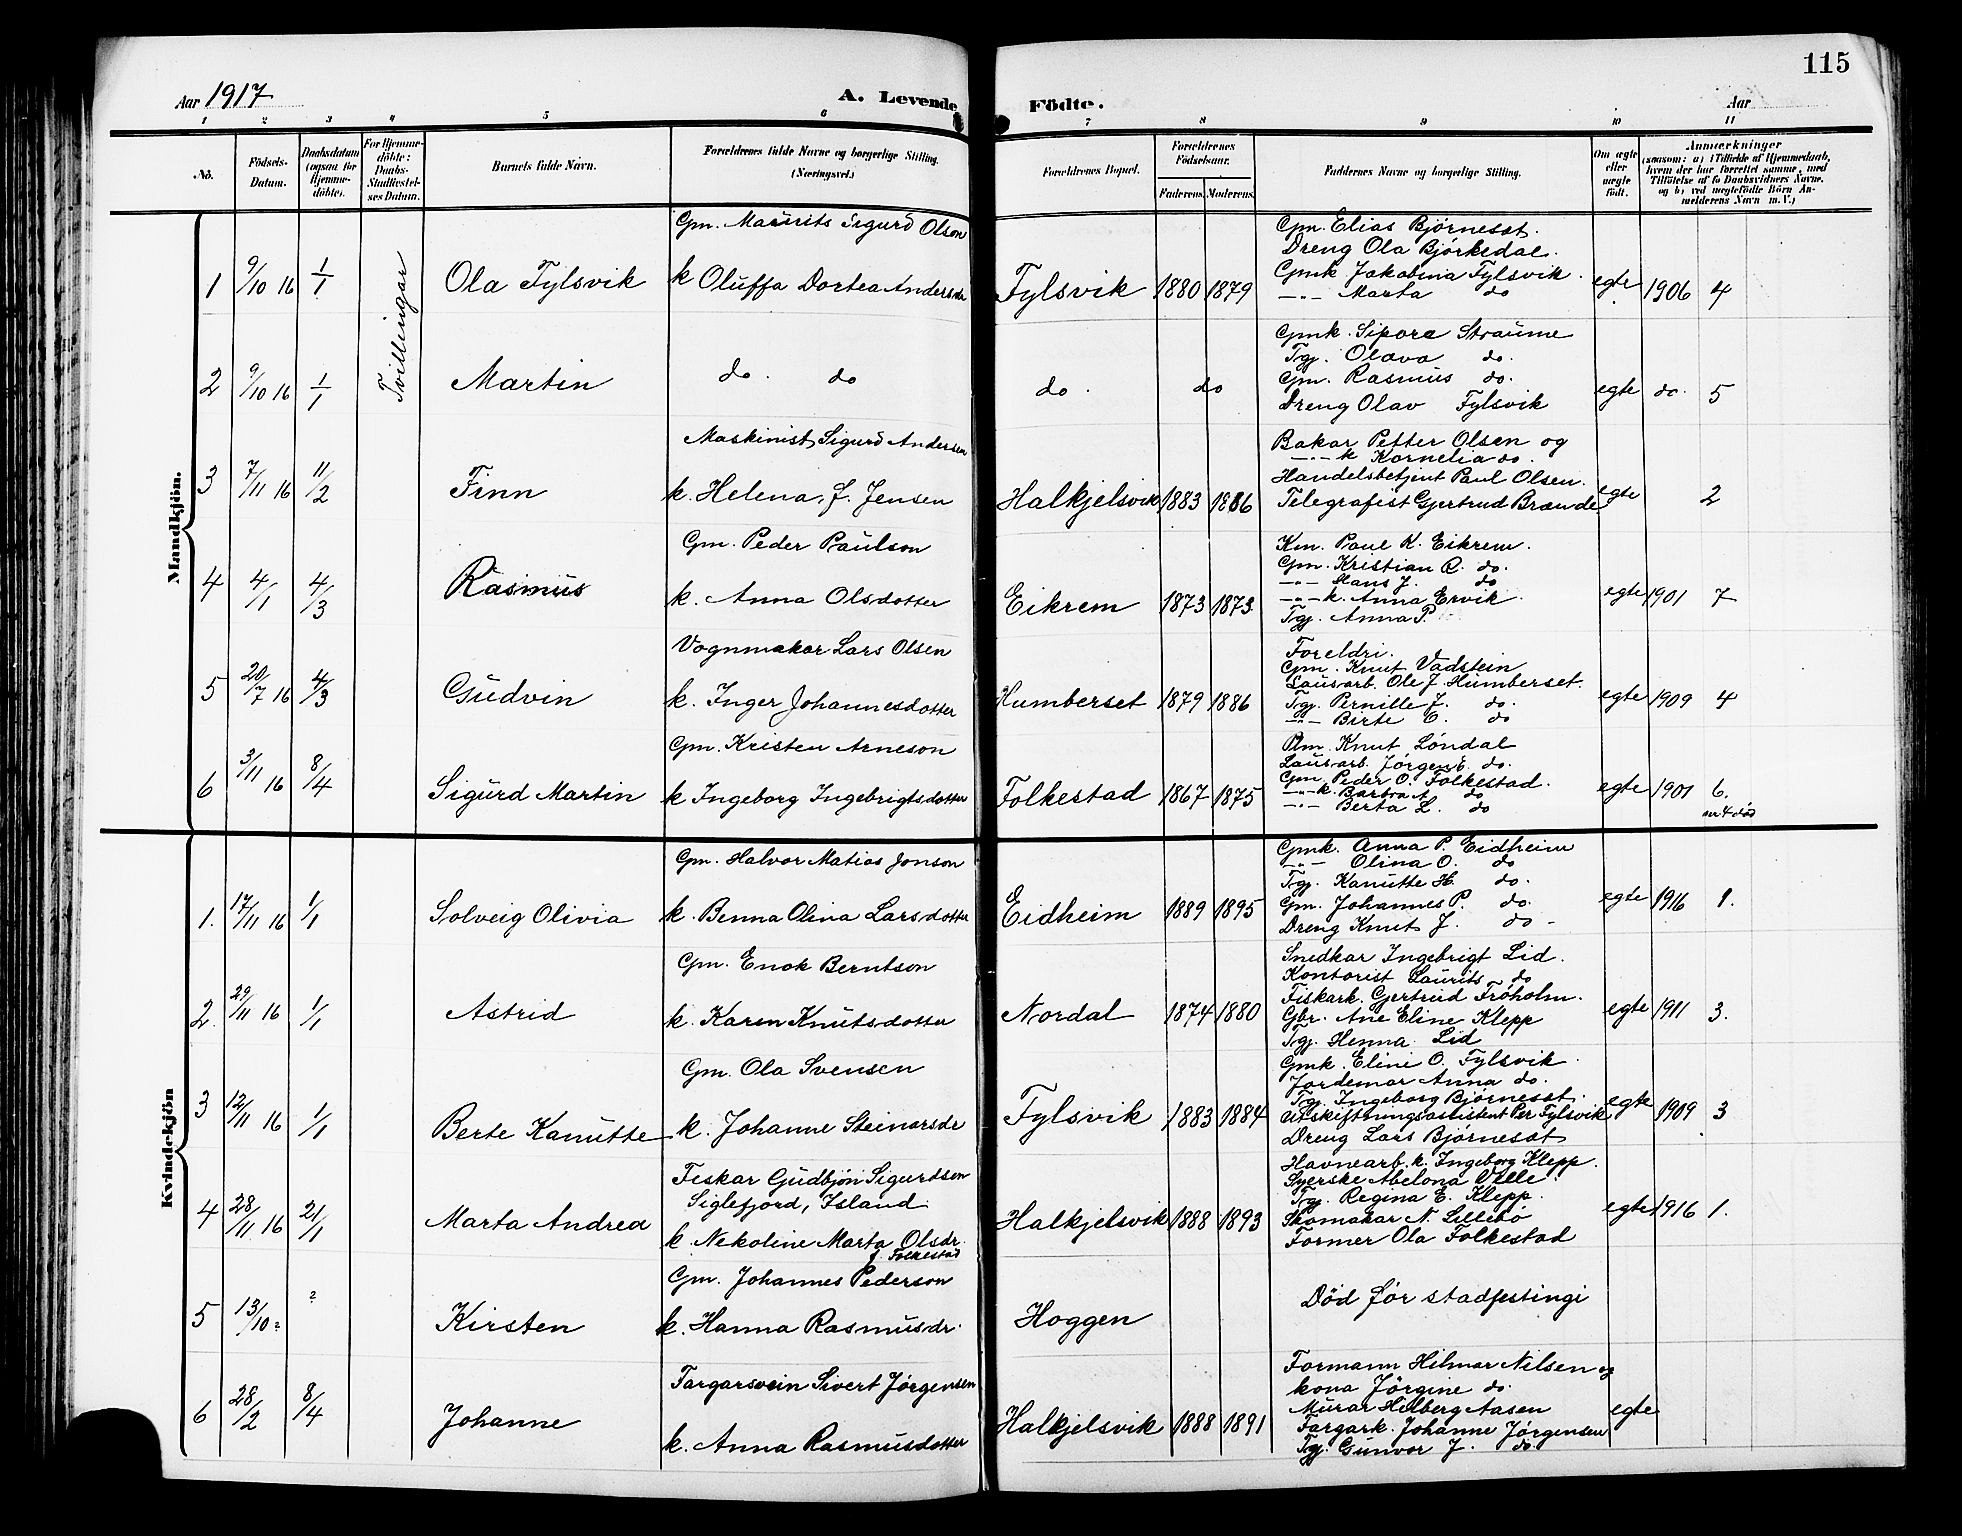 115
Aar 1917
A. Levende
Födte.
Aar
1 2 3 4 5 6 7 8 9 10 11
No.
Födsels-Datum.
Daabsdatum (ogsaa for Hjemmedöbte).
For Hjemmedöbte: Daabs-Stadfæstelses Datum.
Barnets fulde Navn.
Forældrenes fulde Navne og borgerlige Stilling. (Næringsvei.)
Forældrenes Bopæl.
Forældrenes Födselsaar.
Faderens. Moderens.
Faddernes Navne og borgerlige Stilling.
Om ægte eller uægte födt.
Anmærkninger
(saasom: a) i Tilfælde af Hjemmedaab, hvem der har forrettet samme, med Tilföielse af to Daabsvidners Navne. og b) ved uægtefödte Börn Anmelderens Navn m. V.)
Mandkjön.
Tvillingar
1 9/10 16 1/1 Ola Fylsvik
Gm. Maurits Sigurd Olson
k Oluffa Dortea Andersdr
Fylsvik 1880 1879
Gm. Elias Bjørneset.
Dreng Ola Bjørkedal.
Gmk. Jakobina Fylsvik.
—"— Marta do
egte 1906 4
2 9/10 16 1/1 Martin
do. do
do. do
Gmk. Sipora Straume
Tgj. Olava do.
Gm. Rasmus do.
Dreng Olav Fylsvik
egte do. 5
3 7/11 16 11/2 Finn
Maskinist Sigurd Andersen
k. Helena, f. Jensen
Halkjelsvik 1883 1886
Bakar Petter Olsen og
—"— k Kornelia do.
Handelsbetjent Paul Olsen.
Telegrafist Gjertrud Brande
egte 2
4 4/1 4/3 Rasmus
Gm. Peder Paulson
k. Anna Olsdotter
Eikrem 1873 1873
Km. Paul K. Eikrem.
Gm. Kristian R. do.
—"— Hans J. do
—"— k. Anna Ervik.
Tgj. Anna P.
egte 1901 7
5 20/7 16 4/3 Gudvin
Vognmakar Lars Olsen
k. Inger Johannesdotter
Humberset 1879 1886
Foreldri.
Gm. Knut Vadstein
Lausarb. Ole J. Humberset.
Tgj. Pernille J. do.
—"— Birte E. do
egte 1909 4
6 3/11 16 8/4 Sigurd Martin
Gm. Kristen Arneson
k Ingeborg Ingebrigtsdotter
Folkestad 1867 1875
Km. Knut Løndal
Lausarb. Jørgen do.
Gm. Peder O. Folkestad.
—"— k. Barbra A. do
—"— Berta L. do
egte 1901 6.
nr 4 død
Kvindekjön
1. 17/11 16 1/1 Solveig Olivia
Gm. Halvor Matias Jonson
k. Benna Olina Larsdotter
Eidheim 1889 1895
Gmk. Anna P. Eidheim
—"— Olina O. do
Tgj. Kanutte H. do.
Gm. Johannes P. do.
Dreng Knut J. do -
egte 1916 1.
2. 29/11 16 1/1 Astrid
Gm. Enok Berntson
k. Karen Knutsdotter
Nordal 1874 1880
Snedkar Ingebrigt Lid.
Kontorist Laurits do
Fiskark. Gjertrud Frøholm.
Gbr. Ane Eline Klepp
Tgj. Henna Lid
egte 1911 3.
3 12/11 16 1/1 Berte Kanutte
Gm. Ola Svensen
k. Johanne Steinarsdr
Fylsvik 1883 1884
Gmk. Elini O. Fylsvik.
Jordemor Anna do.
Tgj. Ingeborg Bjørneset.
Utskiftningsassistent Per Fylsvik
Dreng Lars Bjørneset
egte 1909 3
4 28/11 16 21/1 Marta Andrea
Fiskar Gudbjøn Sigurdson
Siglefjord, Island.
k. Nekoline Marta Olsdr.
f. Folkestad
Halkjelsvik 1888 1893
Havnearb. k. Ingeborg Klepp.
Syerske Abelona Velle
Tgj. Regina E. Klepp.
Skomakar N. Lillebø
Former Ola Folkestad
egte 1916 1.
5 13/10 ? ? Kirsten
Gm. Johannes Pederson
k. Hanna Rasmusdr.
Hoggen
Død før stadfestingi
6 28/2 8/4 Johanne
Fargarsvein Sivert Jørgensen
k. Anna Rasmusdotter
Halkjelsvik 1888 1891
Formann Hilmar Nilsen og
kona Jørgine do.
Murar Hilberg Aasen
Fargark. Johanne Jørgensen
Tgj. Gunvor J. do.
egte